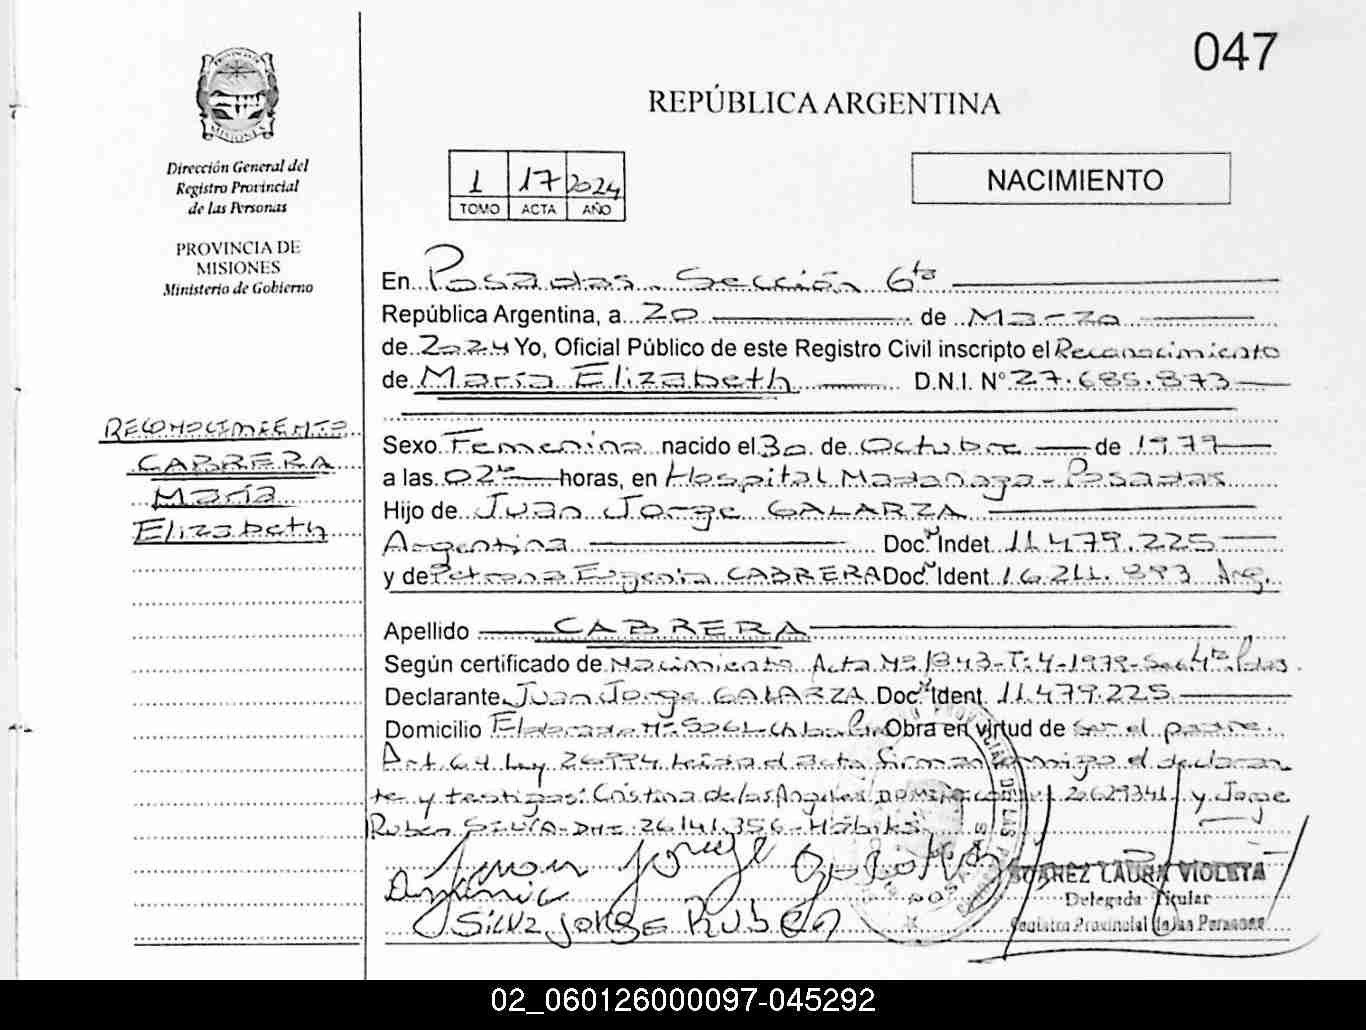 047
PROVINCIA DE
MISIONES
Dirección General del
Registro Provincial
de las Personas
PROVINCIA DE
MISIONES
Ministerio de Gobierno
RECONOCIMIENTO
CABRERA
María
Elizabeth
REPÚBLICA ARGENTINA
1 17 2024
TOMO ACTA AÑO
NACIMIENTO
En Posadas. Sección 6ta
República Argentina, a 20 de Marzo
de 2024 Yo, Oficial Público de este Registro Civil inscripto el Reconocimiento
de María Elizabeth D.N.I. N° 27.685.873
Sexo Femenino nacido el 30 de Octubre de 1979
a las 02 horas, en Hospital Madariaga - Posadas
Hijo de Juan Jorge GALARZA
Argentina Doc. Indet 11.479.225
y de Petrona Eugenia CABRERA Doc. Ident 16.211.893 Arg.
Apellido CABRERA
Según certificado de Nacimiento Acta Nº 1843-T:4-1979-Sec 4ta Pdas.
Declarante Juan Jorge GALARZA Doc. Ident 11.479.225
Domicilio Nº 5061 Obra en virtud de ser el padre.
Art. 64 Ley 26994 leída el acta firman conmigo el declaran
te y testigos: Cristina de los Angeles 20629341 y Jorge
Ruben SILVA-DNI 26.141.356-Hábiles
Juan Jorge Galarza
Silva JORGE RUBEN
SUAREZ LAURA VIOLETA
Delegada Titular
Registro Provincial de las Personas
02_060126000097-045292